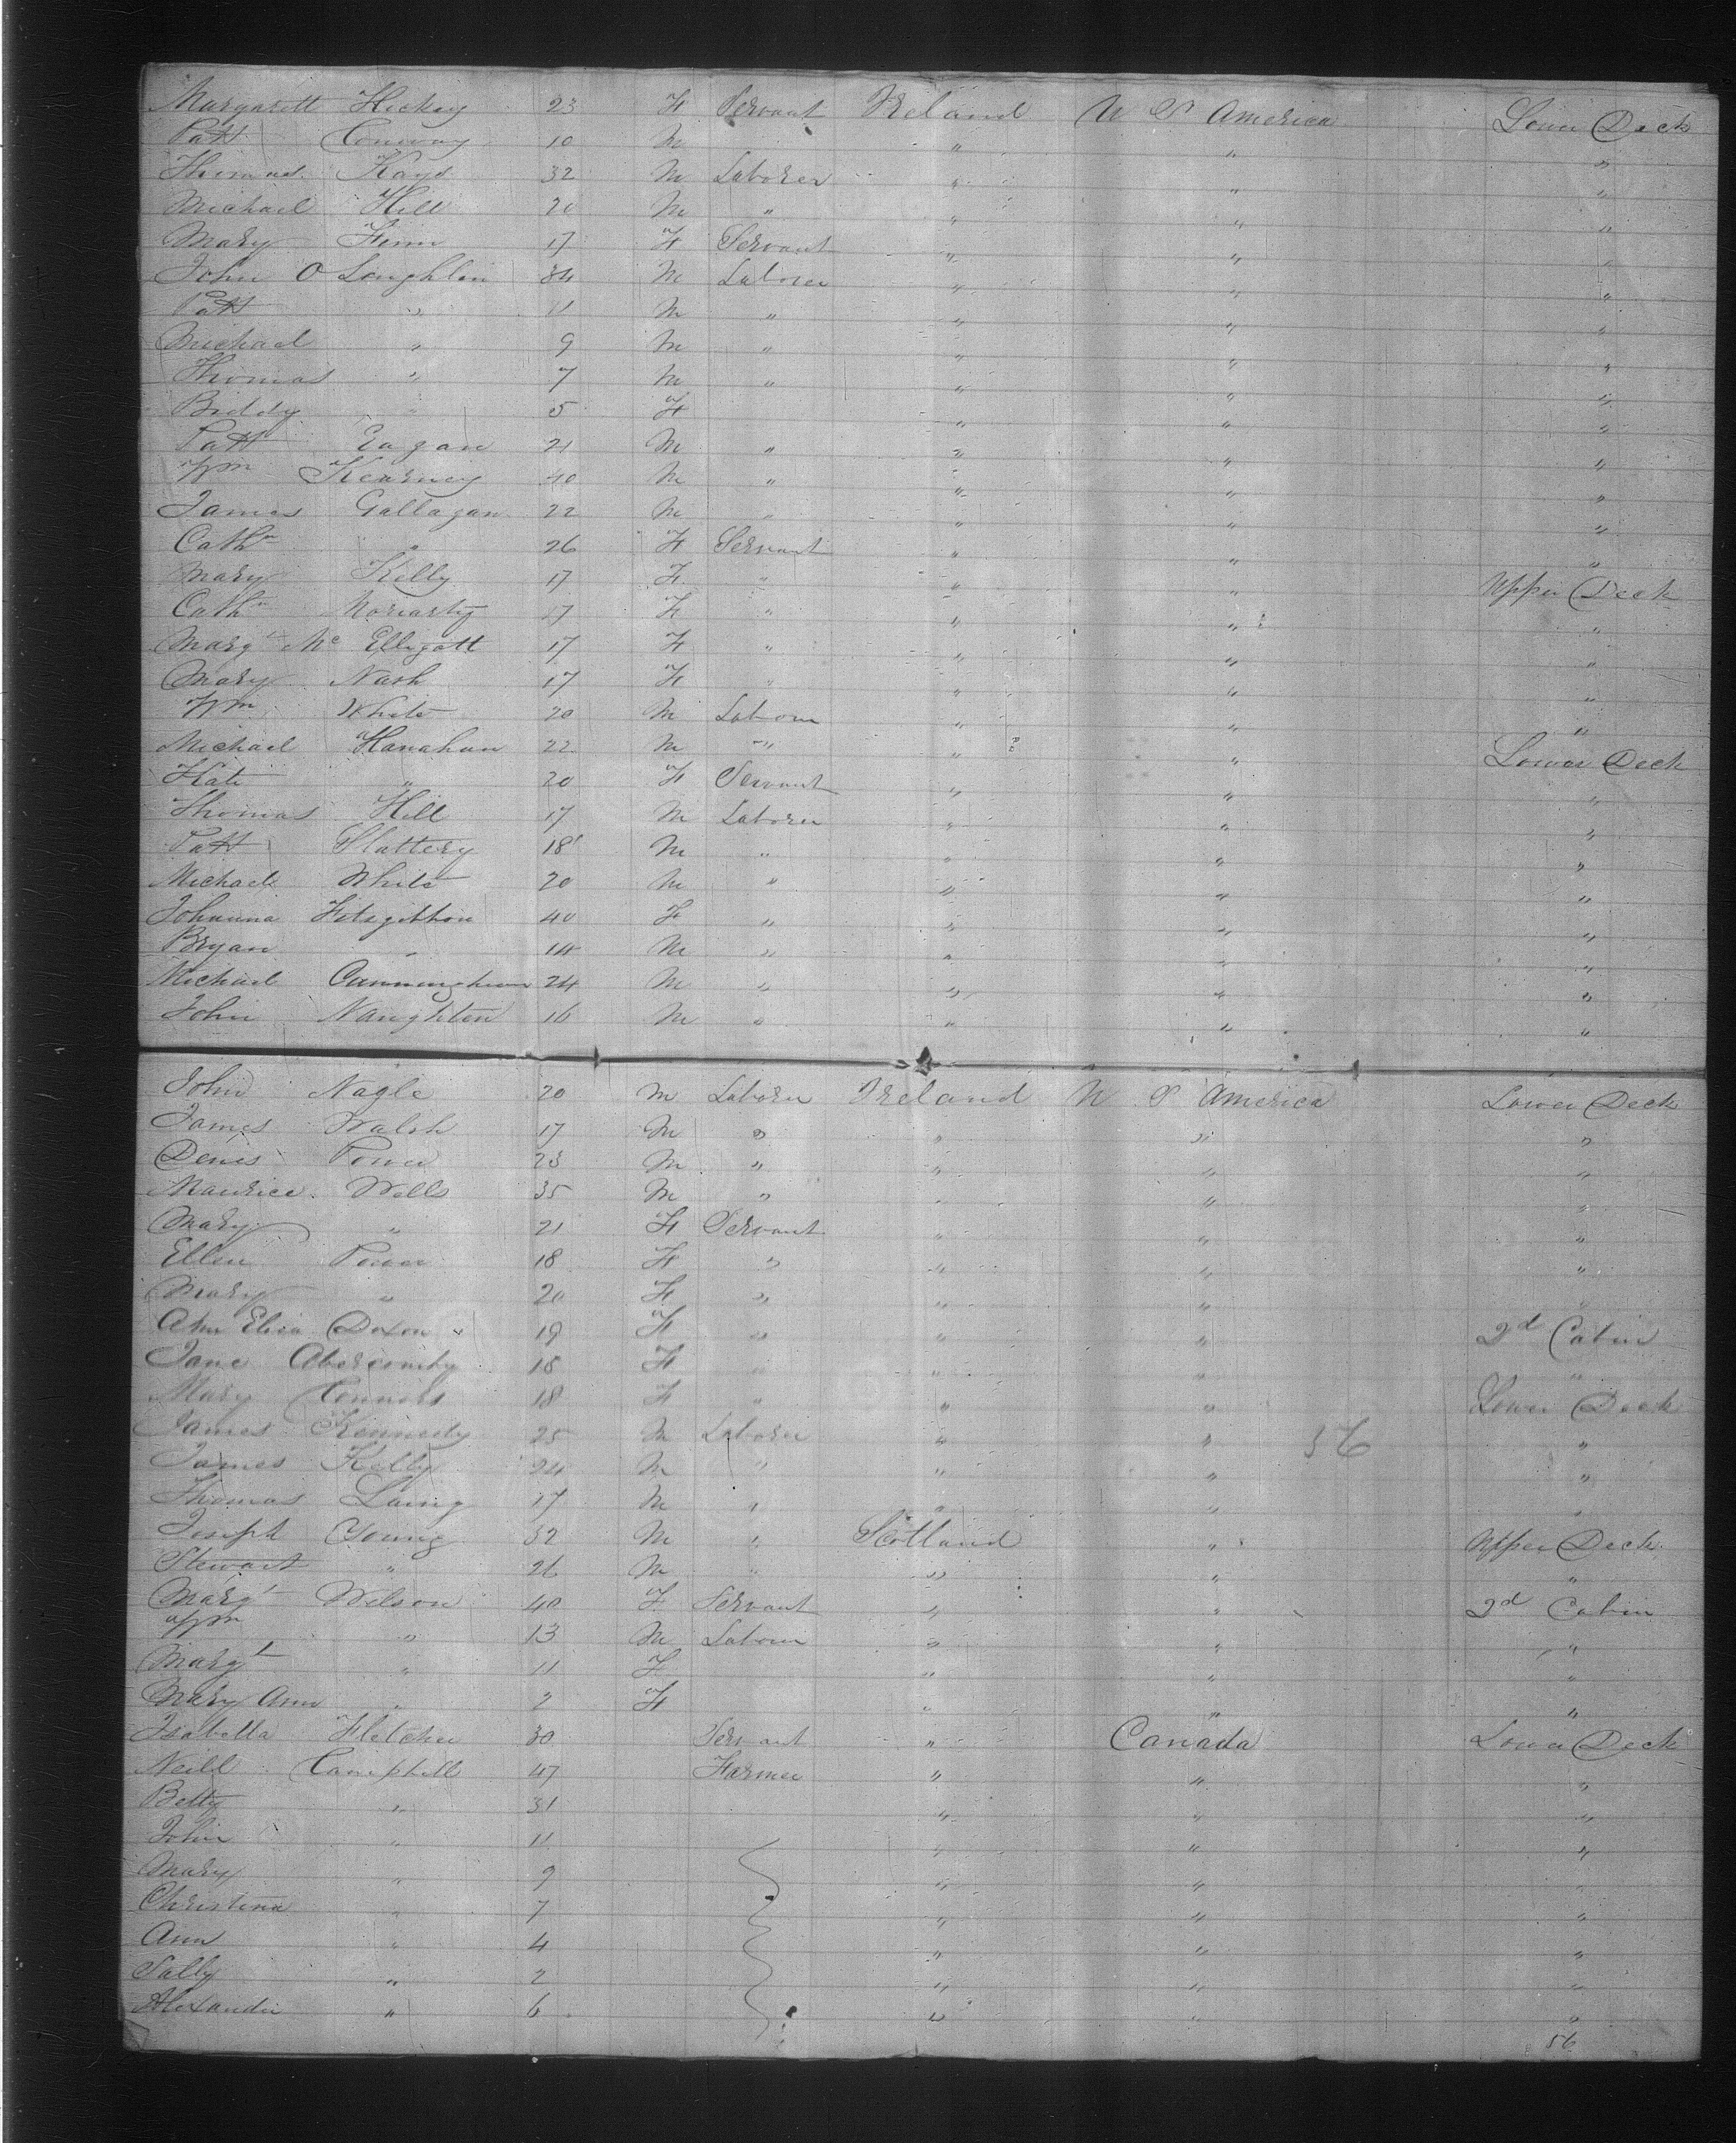 Margarett Hickey 23 F Servant Ireland U S America Lower Deck
Patt Conway 10 M " " "
Thomas Kays 32 M Laborer " " "
Michael Hill 20 M " " " "
Mary Finn 17 F Servant " " "
John O Loughlin 34 M Laborer " " "
Patt " 11 M " " " "
Michael " 9 M " " " "
Thomas " 7 M " " " "
Biddy " 5 F " " "
Patt Eagan 21 M " " " "
Wm Kearney 40 M " " " "
James Gallagan 22 M " " " "
Cathn " 26 F Servant " " "
Mary Kelly 17 F " " " Upper Deck
Cathn Moriarty 17 F " " " "
Margt Mc Elligott 17 F " " " "
Mary Nash 17 F " " " "
Wm White 20 M Labour " " "
Michael Hanahan 22 M " " " Lower Deck
Kate " 20 F Servant " " "
Thomas Hill 17 M Laborer " " "
Patt Slattery 18 M " " " "
Michael White 20 M " " " "
Johanna Fitsgibbon 40 F " " " "
Bryan " 14 M " " " "
Michael Cunningham 24 M " " " "
John Naughton 16 M " " " "
John Nagle 20 M Laborer Ireland U S America Lower Deck
James Walsh 17 M " " " "
Denis Power 23 M " " " "
Maurice Wells 35 M " " " "
Mary " 21 F Servant " " "
Ellen Power 18 F " " " "
Mary " 20 F " " " "
Ann Eliza Doxon 19 F " " " 2d Cabin
Jane Abercomby 18 F " " " "
Mary Connors 18 F " " " Lower Deck
James Kennedy 25 M Laborer " " 56 "
James Kelly 24 M " " " "
Thomas Laing 17 M " " " "
Joseph Young 32 M " Scotland " Upper Deck
Stewart " 26 M " " " "
Margt Wilson 40 F Servant " " 2d Cabin
Wm " 13 M Labour " " "
Margt " 11 F " " "
Mary Ann " 2 F " " "
Isabella Fletcher 30 Servant " Canada Lower Deck
Neill Campbell 47 Farmer " " "
Betty " 31 " " "
John " 11 " " "
Mary " 9 " " "
Christina " 7 " " "
Ann " 4 " " "
Sally " 2 " " "
Alexander " 6 " " "
56